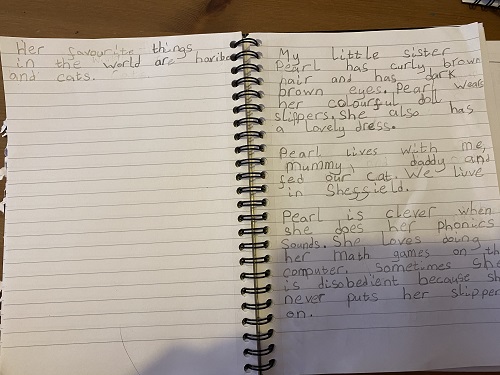 Her favourite things
in the world are haribo
and cats.
My little sister
Pearl has curly brown
hair and has dark
brown eyes. Pearl wears
her colourful doll
slippers. She also has
a lovely dress.
Pearl lives with me,
mummy, daddy and
fed our cat. We livve
in Sheffield.
Pearl is clever when
she does her phonics
sounds. She loves doing
her math games on th
computer. sometimes She
is disobedient because sh
never puts her slipper
on.